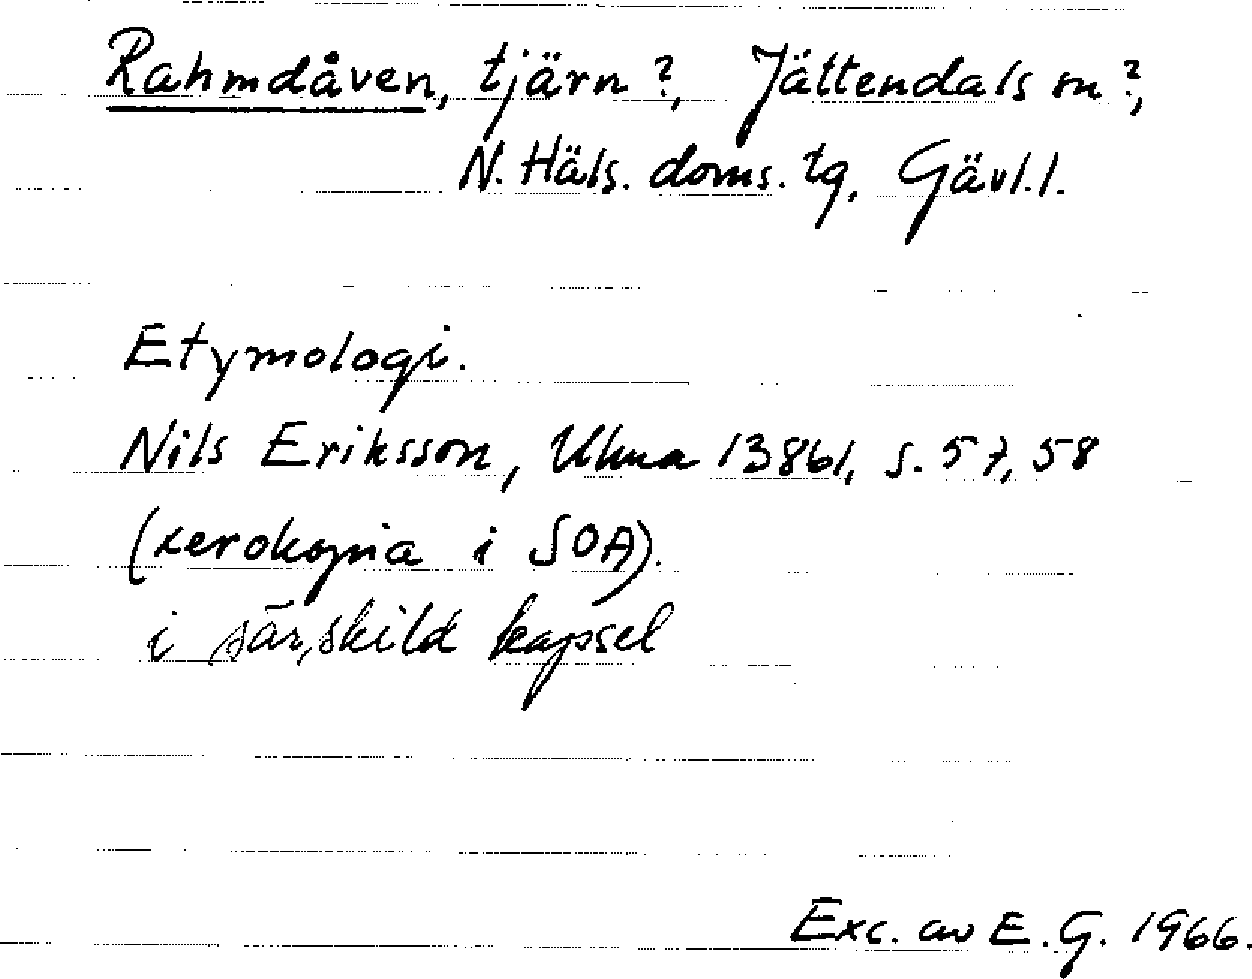 Rahmdåven, tjärn?, Jättendals sn?,
N. Häls. doms. tg, Gävl.l.
Etymologi.
Nils Eriksson, Ulma 13861, s. 57, 58
(xerokopia i SOA).
i särskild kapsel
Exc. av E.G. 1966.